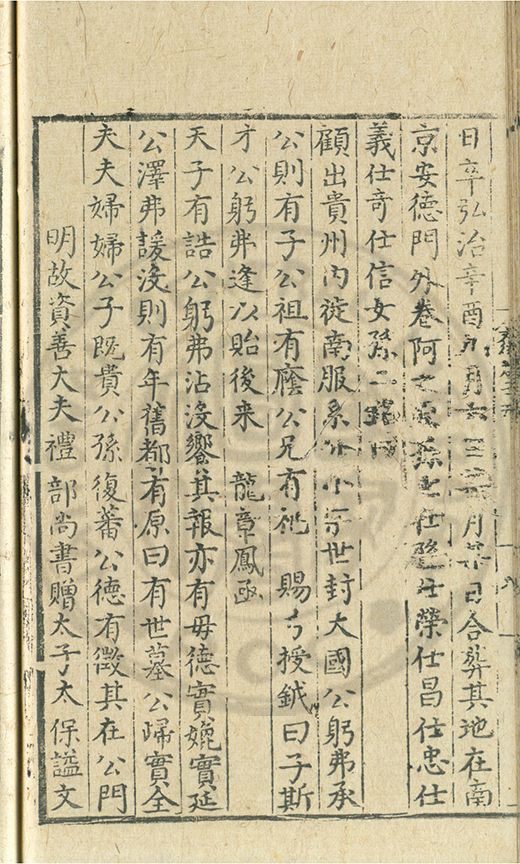 日卒弘治辛酉九月月廿日合葬其地在南
京安徳門外巷阿之仕仕榮仕昌仕忠仕
義仕奇仕信女孫二
顧出貴州内徙南服系世封大國公躬弗承
公則有子公祖有廕公兄有祉　賜弓授鉞曰子斯
才公躬弗逢以貽後来　龍章鳳函
天子有誥公躬弗沾没饗其報亦有毋德實婉實延
公澤弗諼没則有年舊都有原曰有世墓公歸實全
夫夫婦婦公子既貴公孫復蕃公德有徵其在公門
明故資善大夫禮部尚書贈太子太保謚文